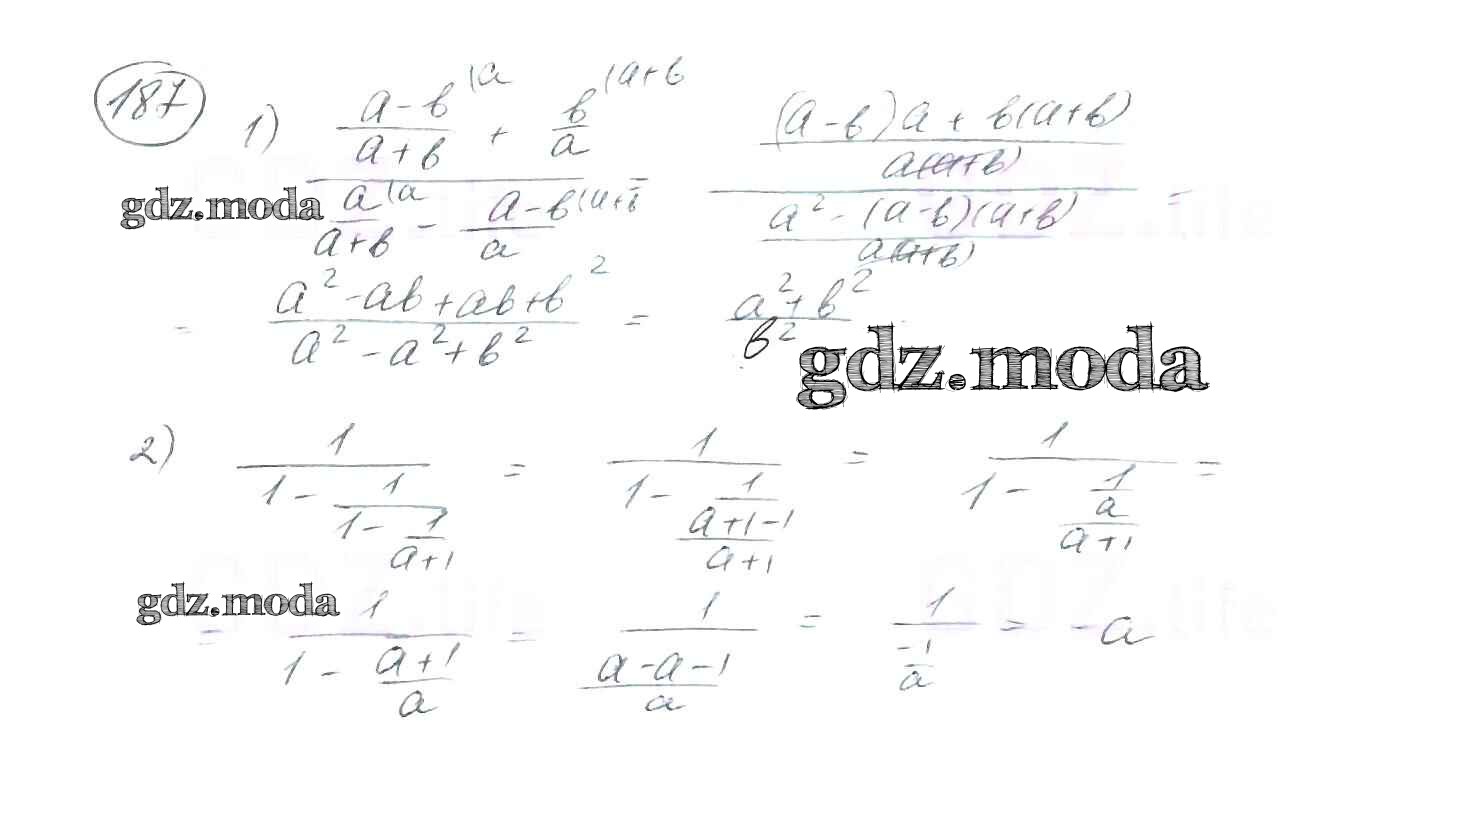 187
1) ((a-b)/(a+b) (a + b/a (a+b) / (a/(a+b) (a - (a-b)/a (a+b) = ((a-b)a + b(a+b))/(a(a+b)) / (a² - (a-b)(a+b))/(a(a+b)) =
gdz.moda
= (a² - ab + ab + b²)/(a² - a² + b²) = (a² + b²)/b²
gdz.moda
2) 1/(1 - 1/(1 - 1/(a+1))) = 1/(1 - 1/((a+1-1)/(a+1))) = 1/(1 - 1/(a/(a+1))) =
gdz.moda
= 1/(1 - (a+1)/a) = 1/((a-a-1)/a) = 1/(-1/a) = -a